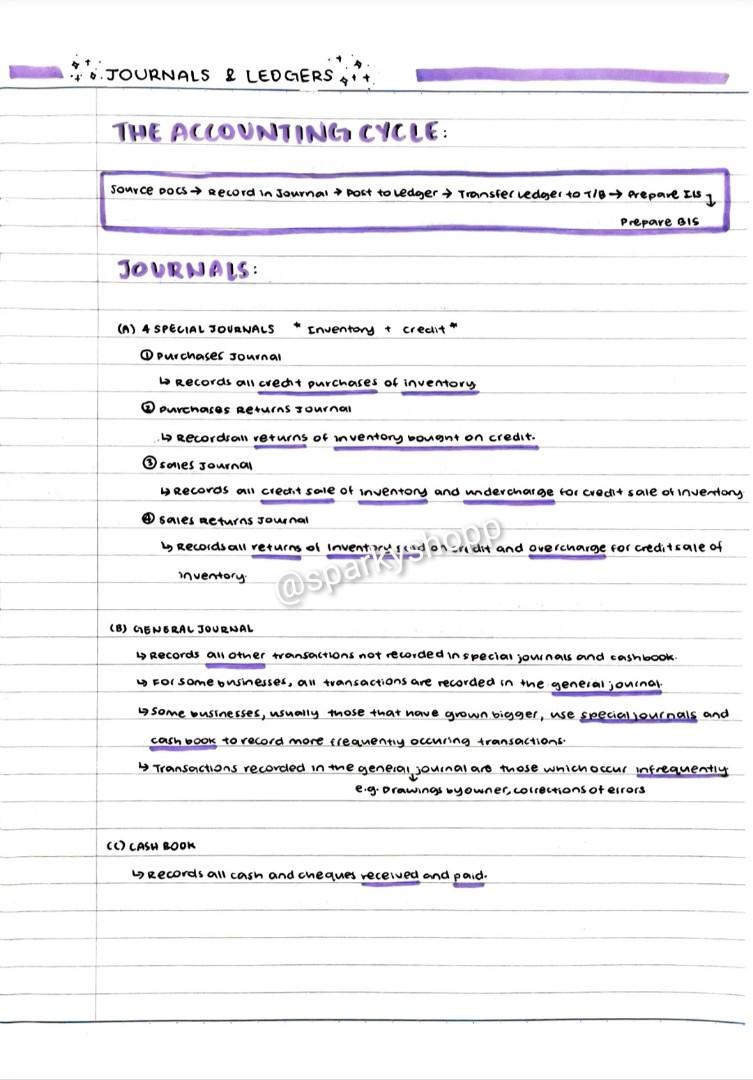 JOURNALS & LEDGERS
THE ACCOUNTING CYCLE:
Source Docs → Record in Journal → Post to Ledger → Transfer Ledger to T/B → Prepare I/S ↓
Prepare B/S
JOURNALS:
(A) 4 SPECIAL JOURNALS * Inventory + credit *
① Purchases Journal
↳ Records all credit purchases of inventory
② Purchases Returns Journal
↳ Records all returns of inventory bought on credit.
③ Sales Journal
↳ Records all credit sale of inventory and undercharge for credit sale of inventory
④ Sales Returns Journal
↳ Records all returns of inventory sold on credit and overcharge for credit sale of
inventory.
@sparkyshopp
(B) GENERAL JOURNAL
↳ Records all other transactions not recorded in special journals and cashbook.
↳ For some businesses, all transactions are recorded in the general journal.
↳ Some businesses, usually those that have grown bigger, use special journals and
cash book to record more frequently occuring transactions.
↳ Transactions recorded in the general journal are those which occur infrequently
e.g. Drawings by owner, corrections of errors
(C) CASH BOOK
↳ Records all cash and cheques received and paid.